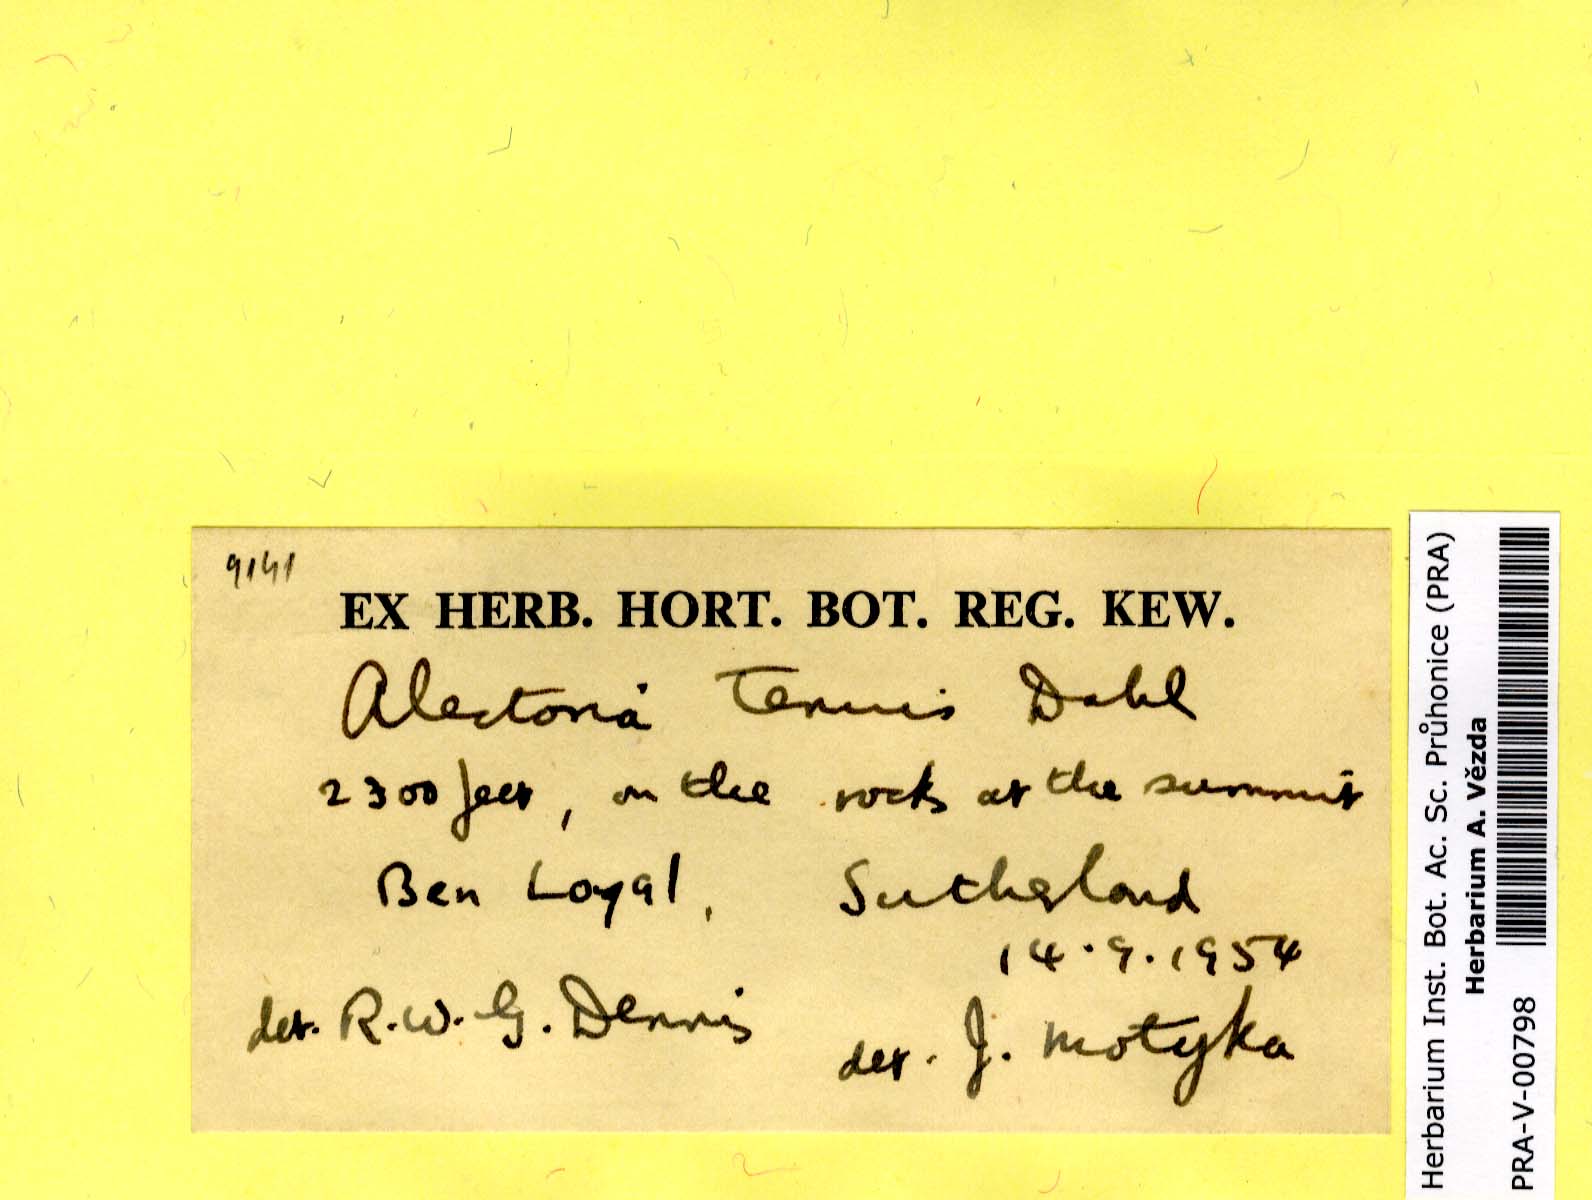 9141
EX HERB. HORT. BOT. REG. KEW.
Alectoria tenuis Dahl
2300 feet, on the rocks at the summit
Ben Loyal, Sutherland
14.9.1954
det. R.W.G. Dennis
det. J. Motyka
Herbarium Inst. Bot. Ac. Sc. Průhonice (PRA)
Herbarium A. Vězda
PRA-V-00798